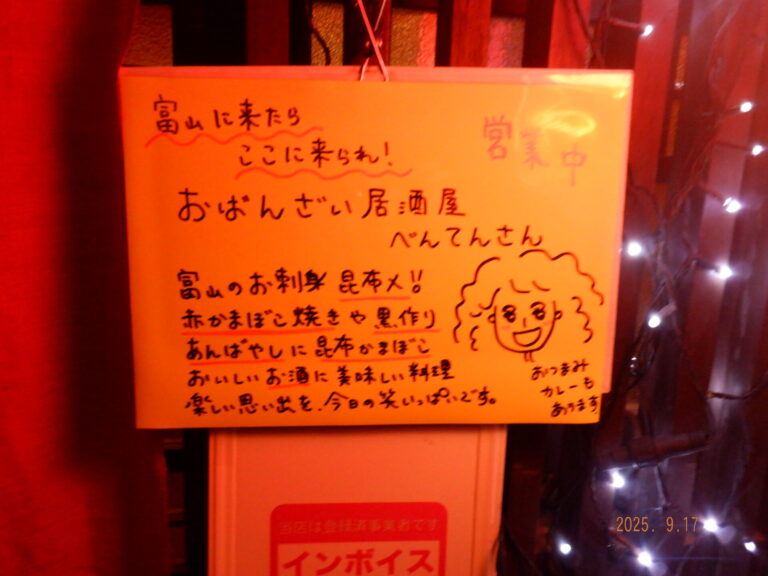 富山に来たら
ここに来られ!
営業中
おばんざい居酒屋
べんてんさん
富山のお刺身 昆布〆!!
赤かまぼこ焼きや黒作り
あんばやしに昆布かまぼこ
おいしいお酒に美味しい料理
楽しい思い出を、今日の笑いっぱいです。
おつまみ
カレーも
あります
当店は会経済事業者です
インボイス
2025. 9.17